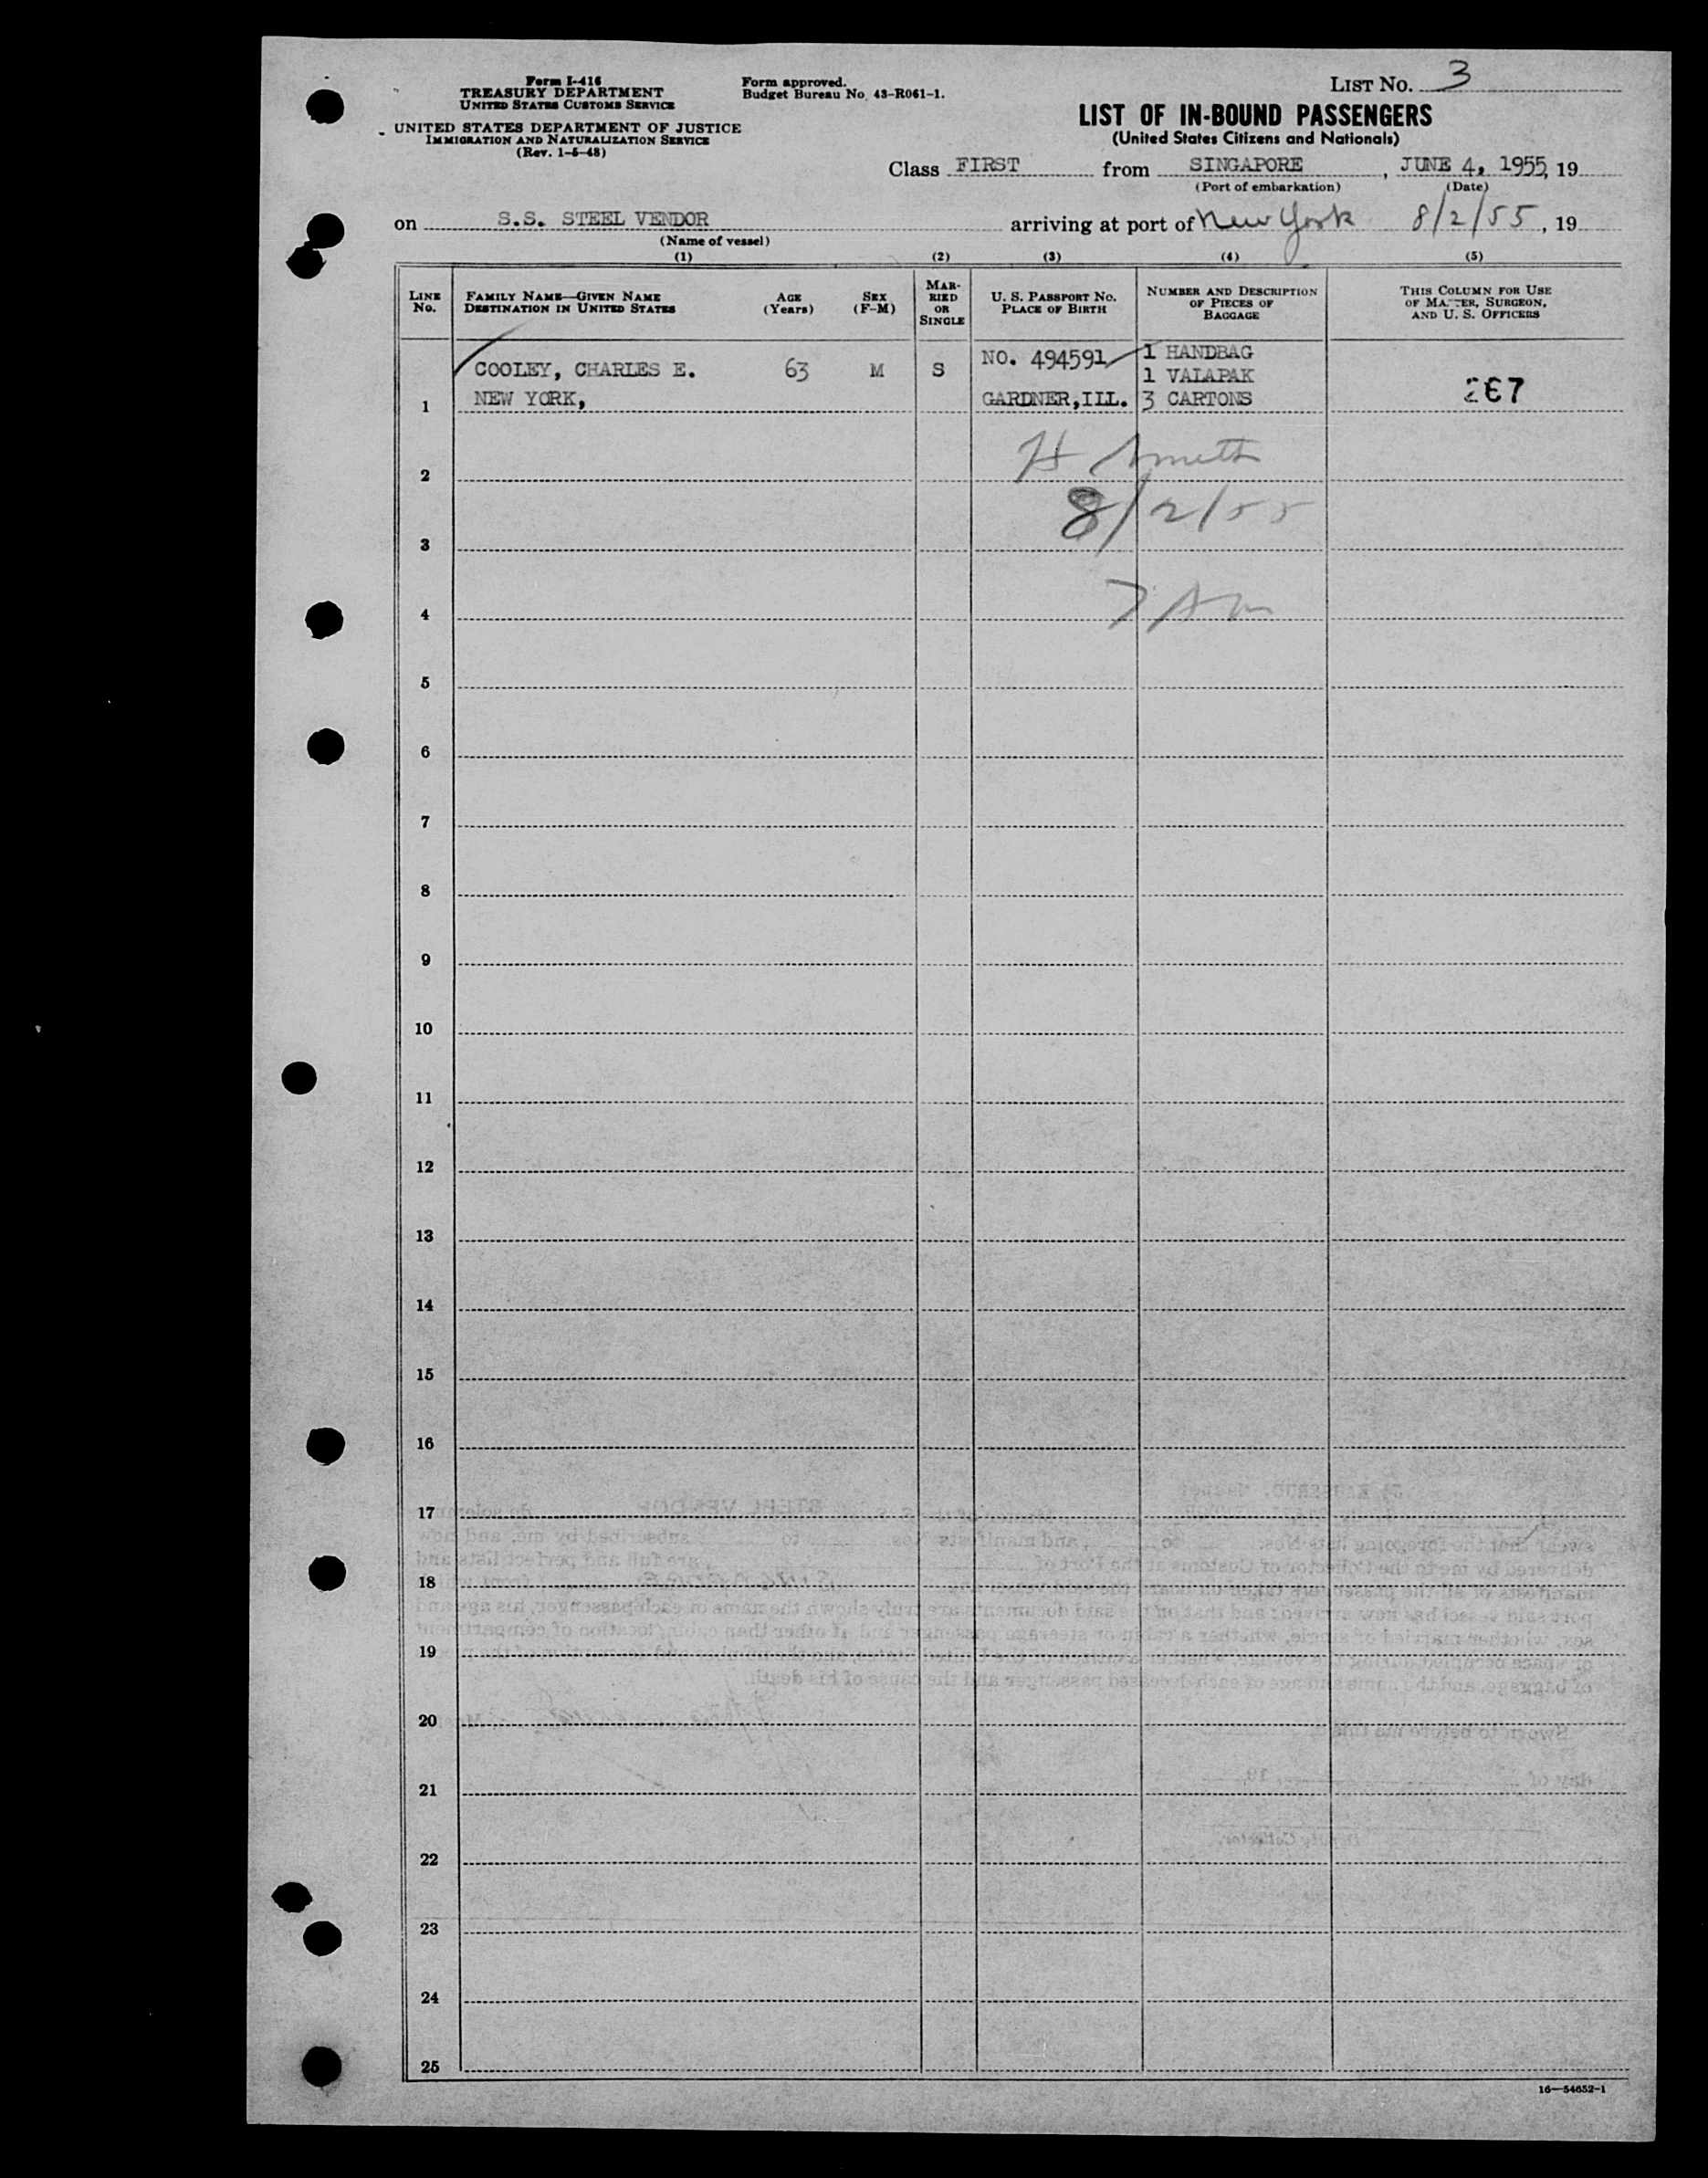 Form I-416
TREASURY DEPARTMENT
UNITED STATES CUSTOMS SERVICE
UNITED STATES DEPARTMENT OF JUSTICE
IMMIGRATION AND NATURALIZATION SERVICE
(Rev. 1-5-48)
Form approved.
Budget Bureau No. 43-R061-1.
LIST NO. 3
LIST OF IN-BOUND PASSENGERS
(United States Citizens and Nationals)
Class FIRST from SINGAPORE, JUNE 4, 1955, 19
(Port of embarkation) (Date)
on S.S. STEEL VENDOR arriving at port of New York 8/2/55, 19
(Name of vessel)
(1) (2) (3) (4) (5)
LINE No.
FAMILY NAME—GIVEN NAME
DESTINATION IN UNITED STATES
AGE (Years)
SEX (F-M)
MARRIED OR SINGLE
U. S. PASSPORT NO.
PLACE OF BIRTH
NUMBER AND DESCRIPTION OF PIECES OF BAGGAGE
THIS COLUMN FOR USE OF MASTER, SURGEON, AND U. S. OFFICERS
1 COOLEY, CHARLES E. 63 M S NO. 494591 1 HANDBAG
1 VALAPAK
NEW YORK, GARDNER, ILL. 3 CARTONS
267
H Smith
8/2/55
7 Am
2
3
4
5
6
7
8
9
10
11
12
13
14
15
16
17
18
19
20
21
22
23
24
25
16—54652-1